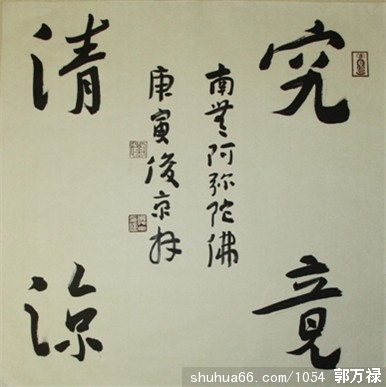 究竟
清凉
南无阿弥陀佛
庚寅俊京拜
shuhua66.com/1054 郭万禄